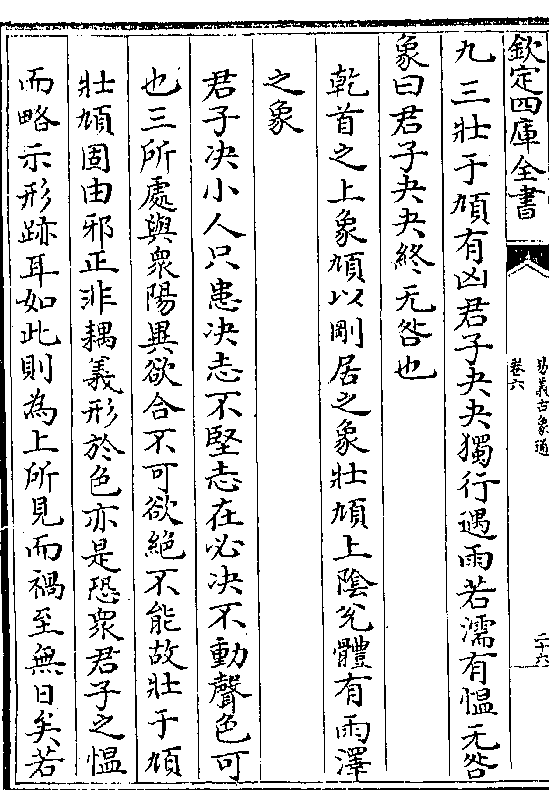 欽定四庫全書
易義古象通
卷六
二十六
九三壯于頄有凶君子夬夬獨行遇雨若濡有慍无咎
象曰君子夬夬終无咎也
乾首之上象頄以剛居之象壯頄上陰兊體有雨澤
之象
君子决小人只患决志不堅志在必决不動聲色可
也三所處與衆陽異欲合不可欲絶不能故壯于頄
壯頄固由邪正非耦義形於色亦是恐衆君子之慍
而略示形跡耳如此則為上所見而禍至無日矣若